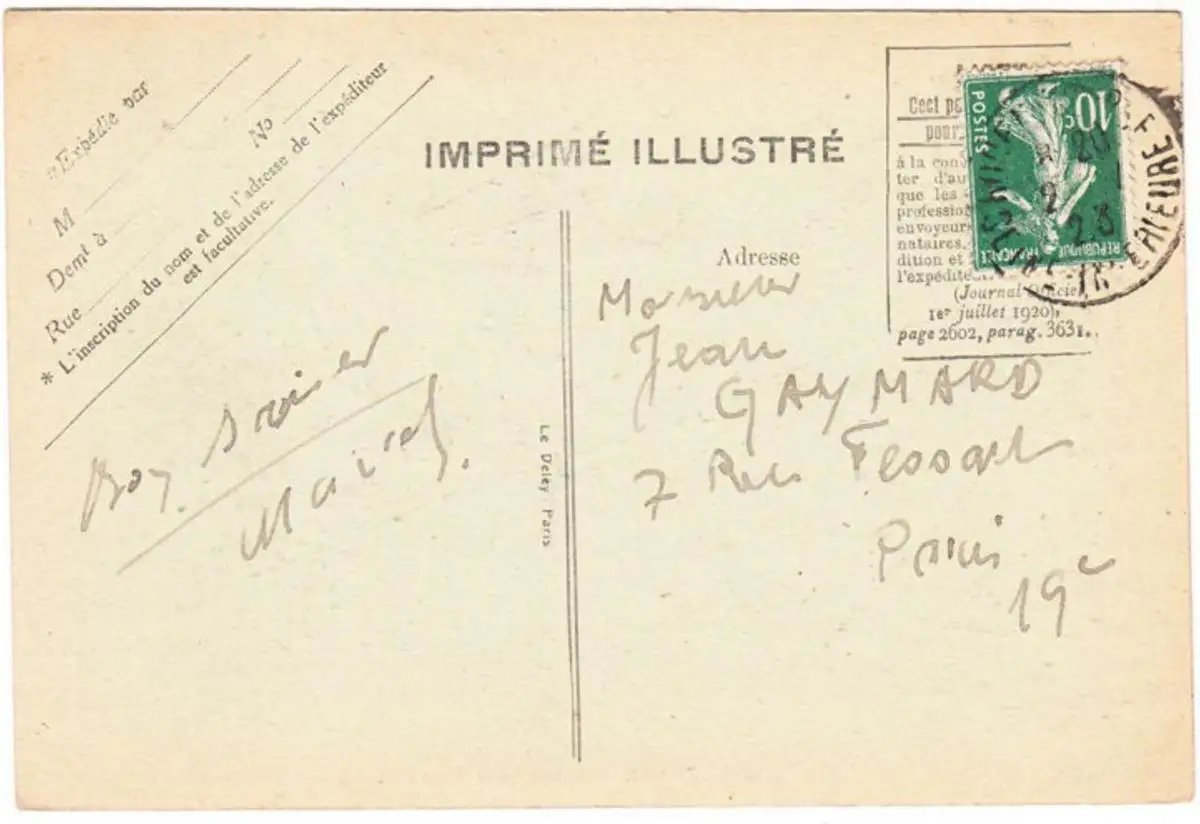 *Expédié par
M
Demt à
Rue
No
* L'inscription du nom et de l'adresse de l'expéditeur
est facultative.
IMPRIMÉ ILLUSTRÉ
Ceci
pour
à la
ter
que les
envoyeurs
nataires.
dition et
(Journal Officiel,
1er juillet 1920),
page 2602, parag. 3631.
10c
POSTES
REPUBLIQUE
FRANÇAISE
INFERIEURE
Adresse
Monsieur
Jean
GAYMARD
7 Rue Fessart
Paris
19e
Le Deley, Paris